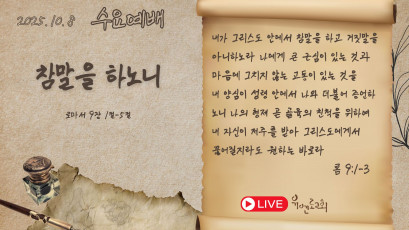 2025.10.8 수요예배
참말을 하노니
로마서 9장 1절-5절
내가 그리스도 안에서 참말을 하고 거짓말을
아니하노라 나에게 큰 근심이 있는 것과
마음에 그치지 않는 고통이 있는 것을
내 양심이 성령 안에서 나와 더불어 증언하
노니 나의 형제 곧 골육의 친척을 위하여
내 자신이 저주를 받아 그리스도에게서
끊어질지라도 원하는 바로라
롬 9:1-3
LIVE